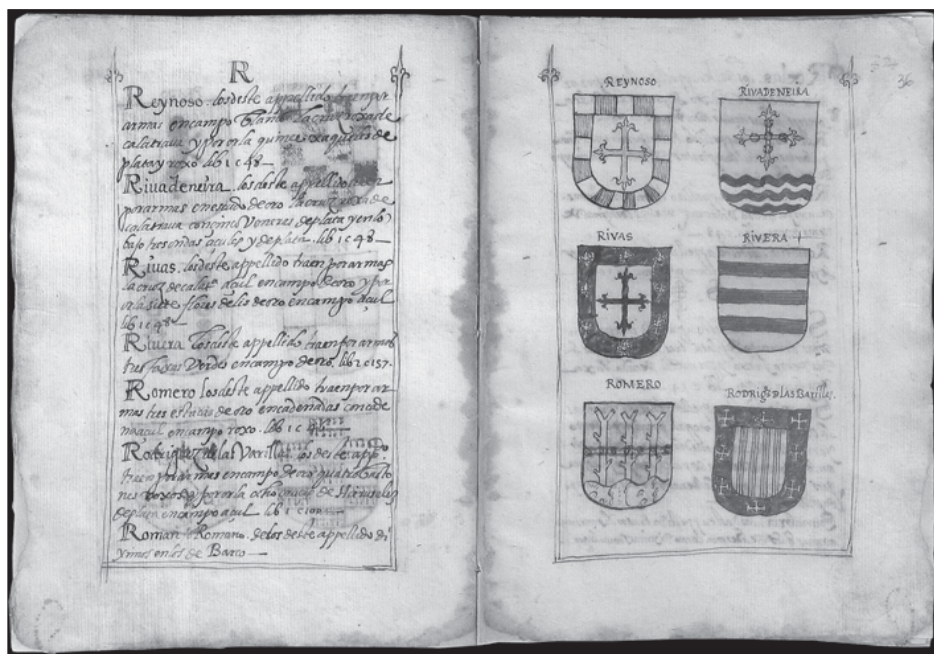 R
Reynoso. los deste appellido traen por
armas en campo blanco la cruz roxa de
calatrava y por orla quince xaqueles de
plata y roxo lib 1 c 48
Rivadeneira. los deste appellido traen
por armas en escudo de oro la cruz roxa de
calatrava con cinco Veneras de plata y en lo
bajo tres ondas açules y de plata. lib 1 c 48
Rivas. los deste appellido traen por armas
la cruz de calat açul en campo de oro y por
orla siete flores de lis de oro en campo açul
lib 1 c 48
Rivera los deste appellido traen por armas
tres faxas Verdes en campo de oro. lib 2 c 157.
Romero los deste appellido traen por ar
mas tres de oro encadenadas con cade
na açul en campo roxo. lib 1 c
Rodriguez de las Varillas los deste appe.
traen por armas en campo de oro quatro basto
nes roxos y por orla ocho cruces de Hierusalen
de plata en campo açul lib 1 c 100
Roman o Romano. de los deste appellido di
ximos en los de Barco
36
REYNOSO
RIVADENEIRA
RIVAS
RIVERA
ROMERO
RODRIGZ DLAS Barillas.